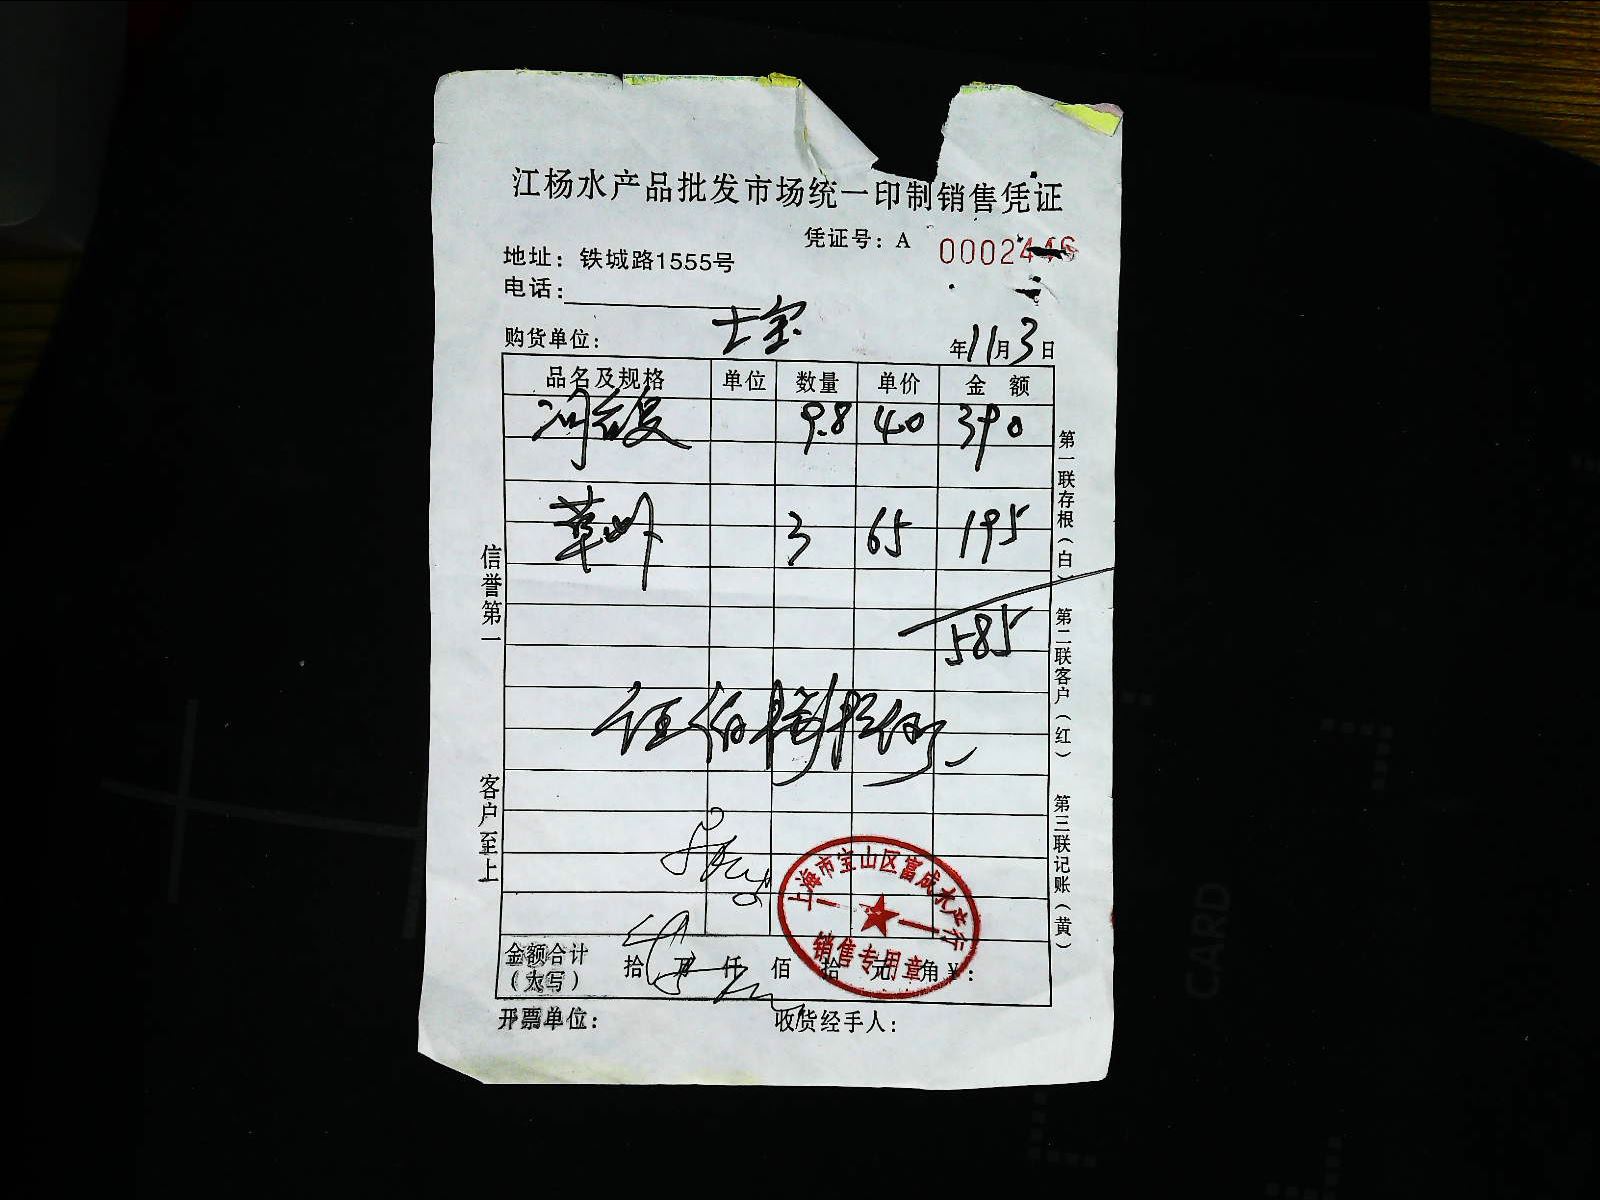 江杨水产品批发市场统一印制销售凭证
凭证号：A 0002446
地址：铁城路1555号
电话：
购货单位：士宝
年11月3日
品名及规格 单位 数量 单价 金额
9.8 40 390
草虾 3 65 195
585
伍佰捌拾伍
金额合计（大写） 拾 万 仟 佰 拾 元 角 ￥：
开票单位： 收货经手人：
信誉第一
客户至上
第一联存根（白）
第二联客户（红）
第三联记账（黄）
上海市宝山区富成水产行
销售专用章
CARD